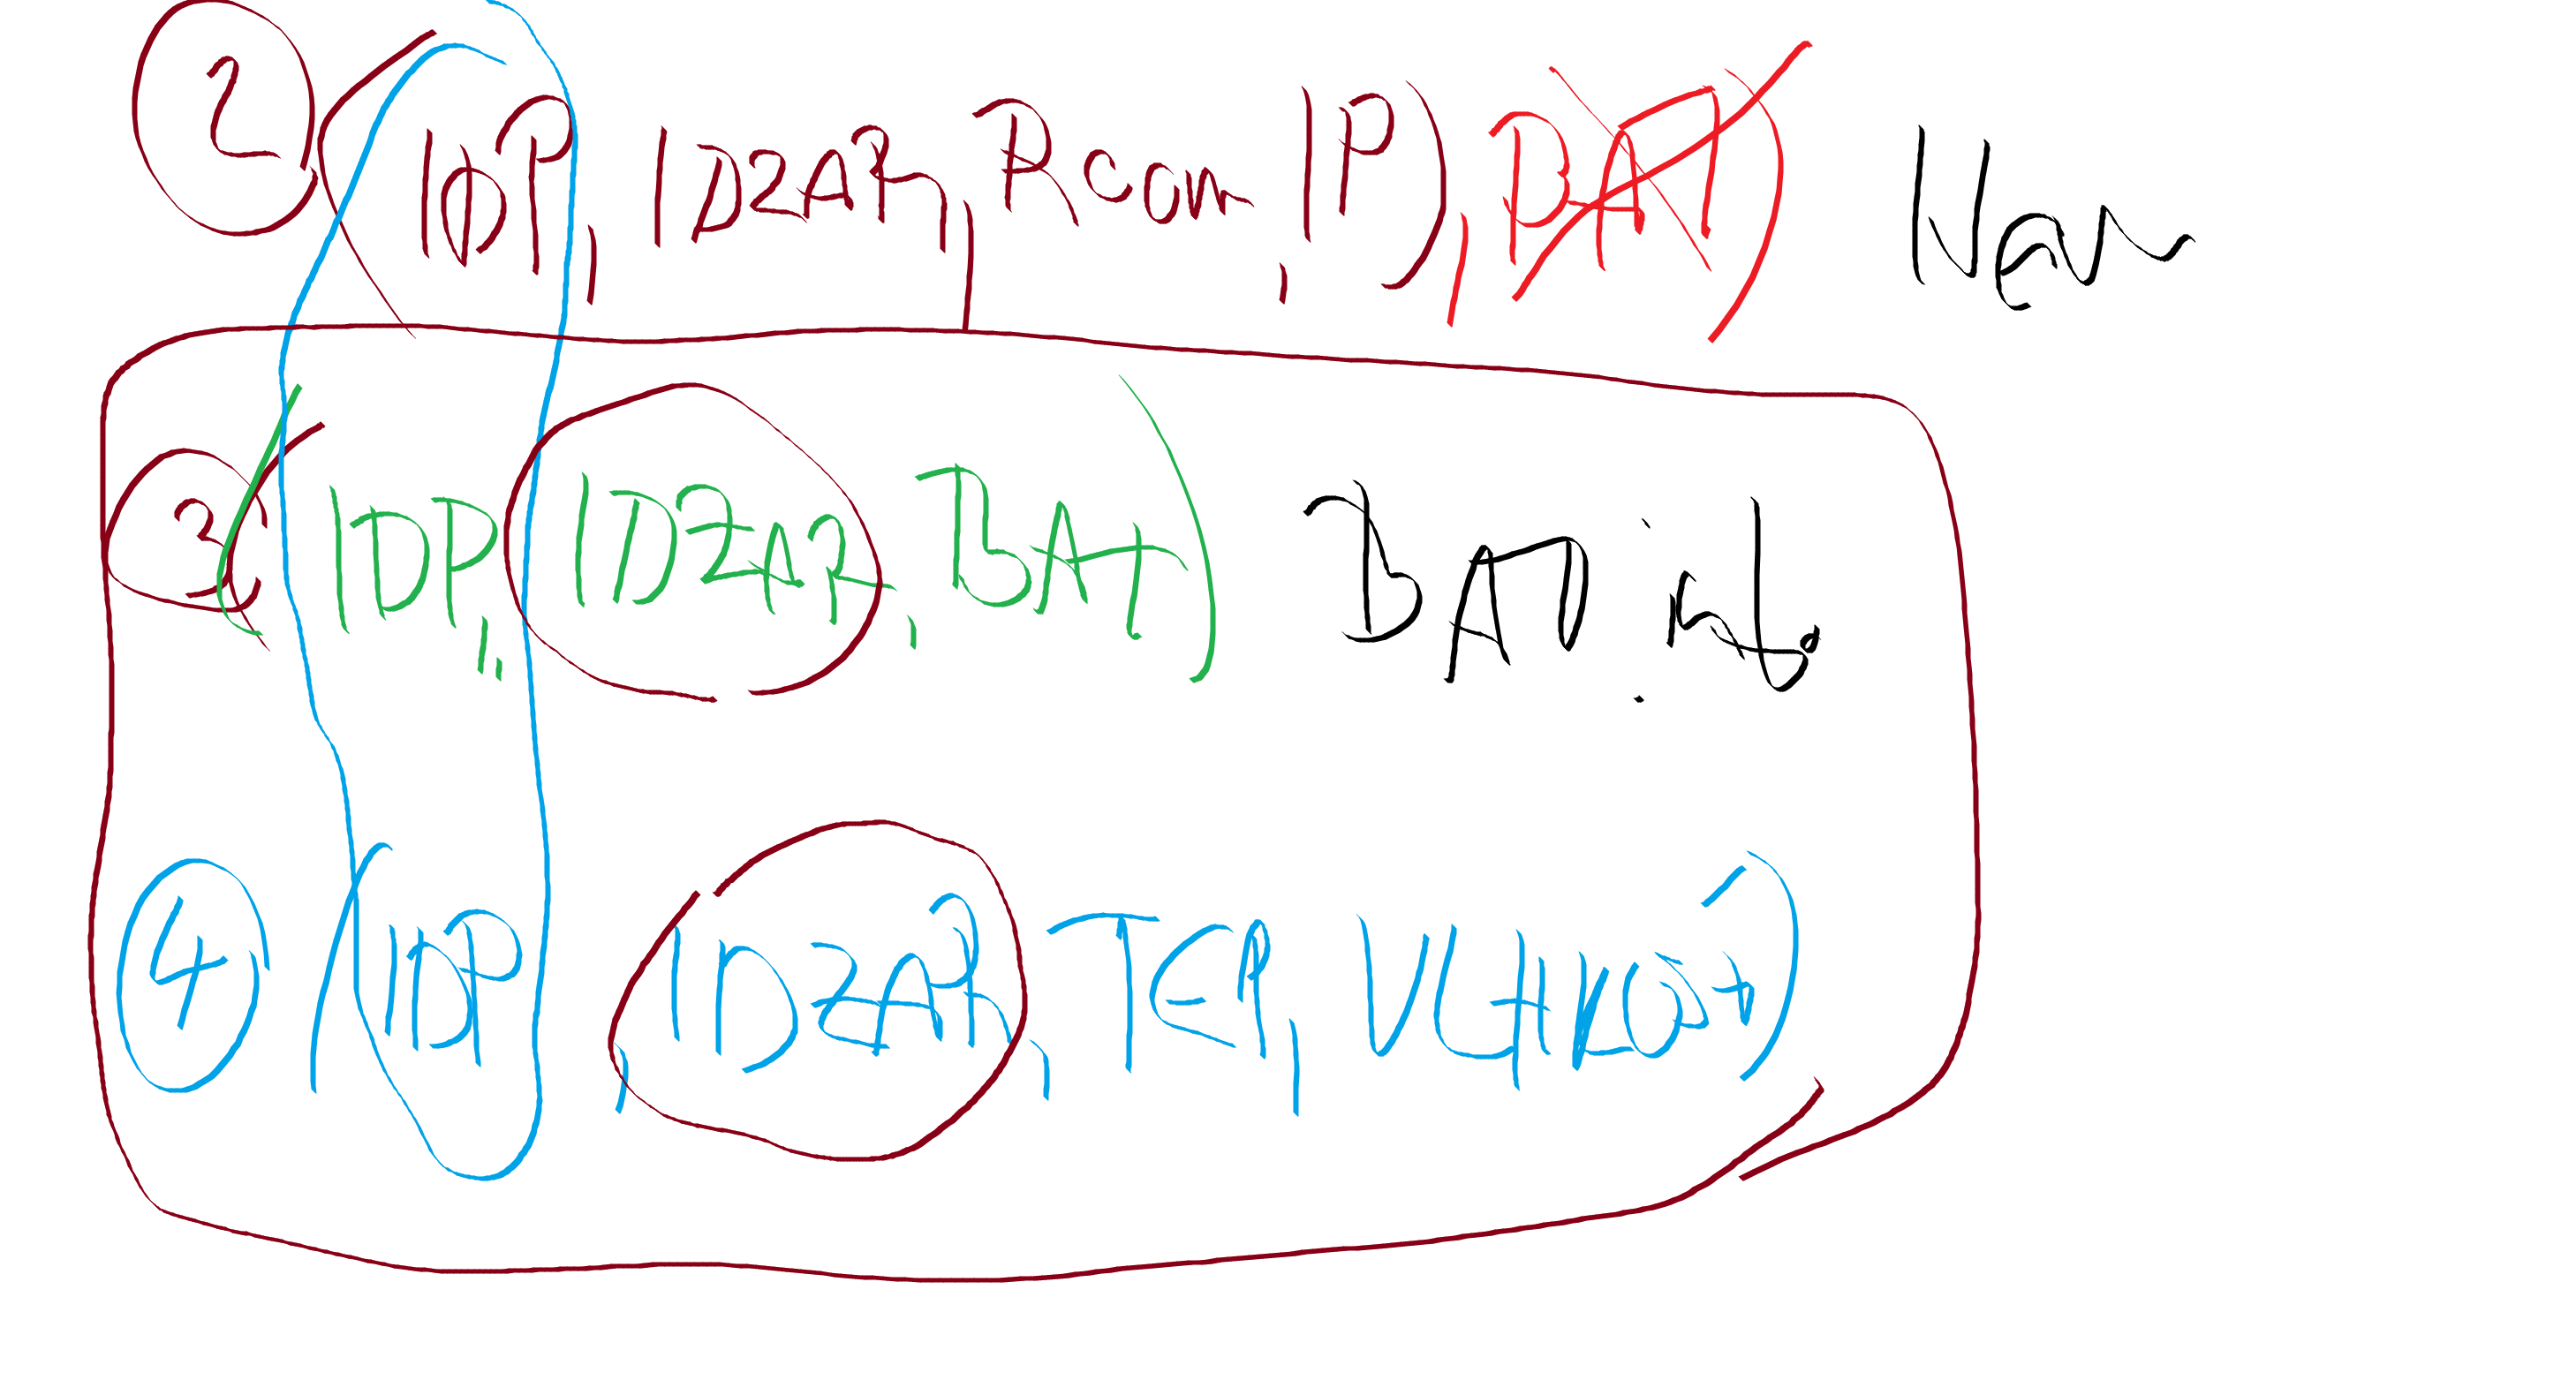 2 (IDP, IDZAR, Room, IP), BAT) New
3 (IDP, IDZAR, BAT) BAT info
4 (IDP, IDZAR, TEP,